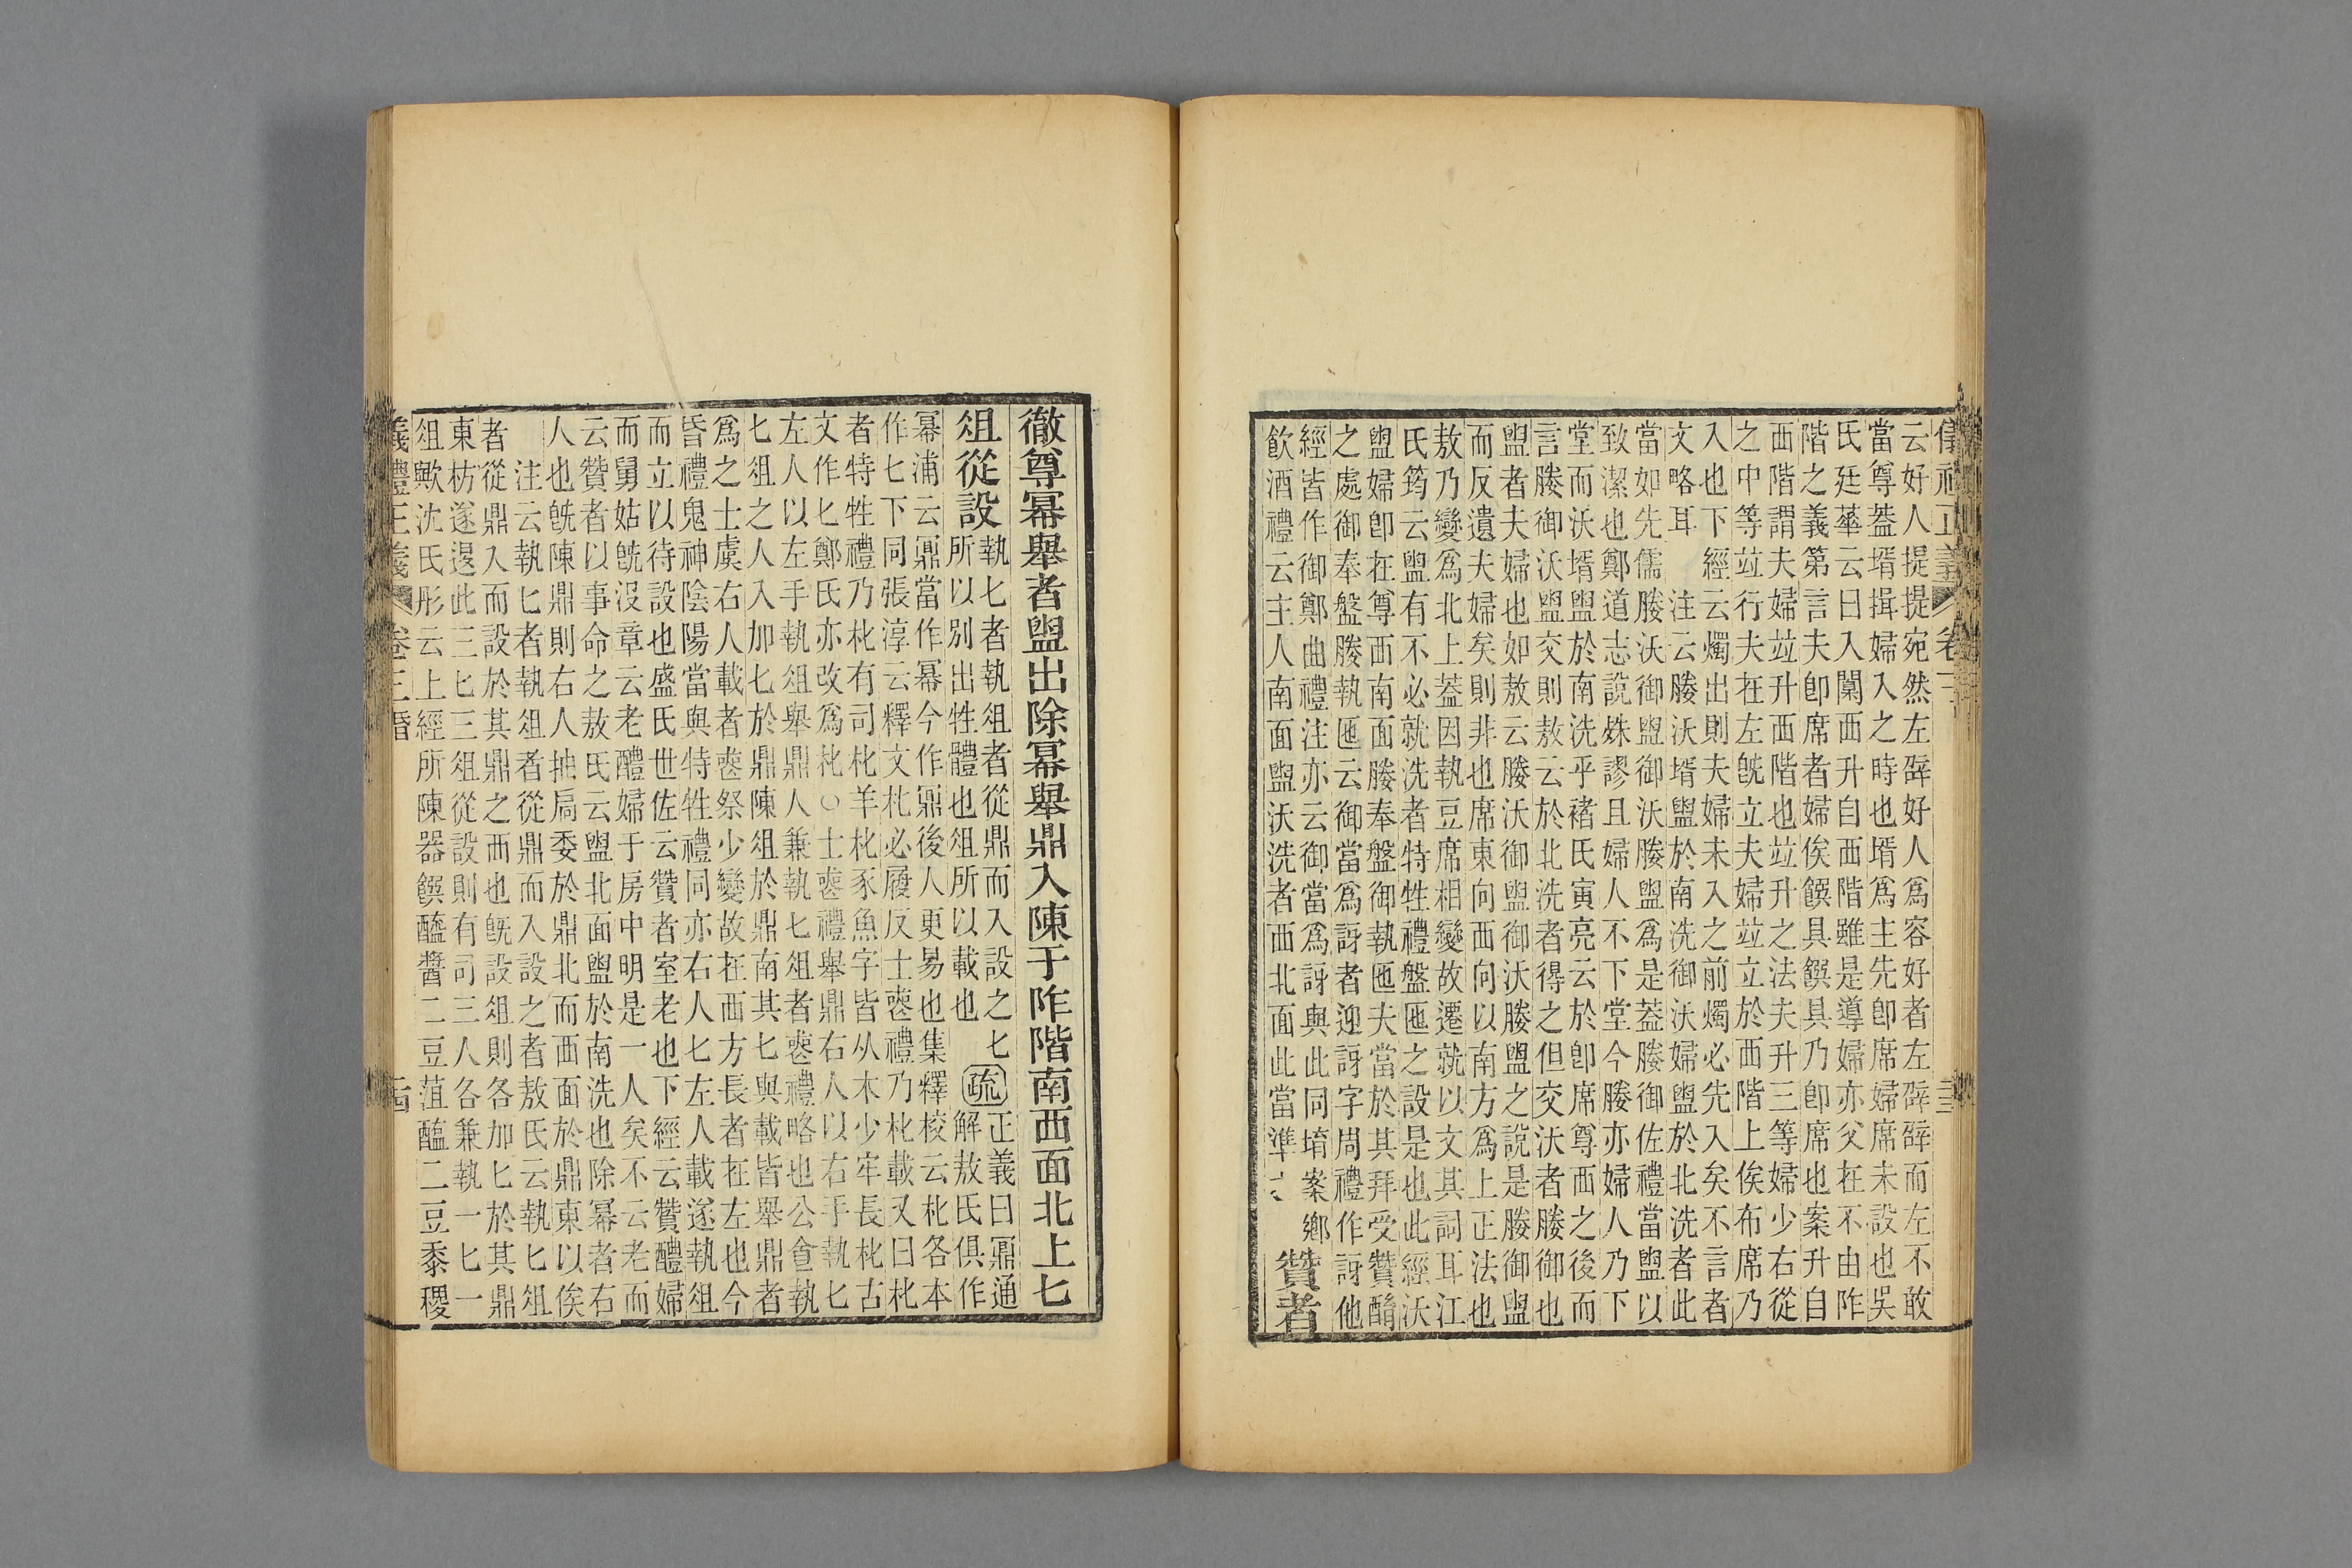 云好人提提宛然左辟好人爲容好者左辟辟而左不敢
當尊葢壻揖婦入之時也壻爲主先卽席婦席未設也吳
氏廷華云曰入闑西升自西階雖是導婦亦父在不由阼
階之義第言夫卽席者婦俟饌具饌具乃卽席也案升自
西階謂夫婦竝升西階也竝升之法夫升三等婦少右從
之中等竝行夫在左旣立夫婦竝立於西階上俟布席乃
入也下經云燭出則夫婦未入之前燭必先入矣不言者
文略耳 注云媵沃壻盥於南洗御沃婦盥於北洗者此
當如先儒媵沃御盥御沃媵盥爲是葢媵御佐禮當盥以
致潔也鄭道志說姝謬且婦人不下堂今媵亦婦人乃下
堂而沃壻盥於南洗乎褚氏寅亮云於卽席尊西之後而
言媵御沃盥交則敖云於北洗者得之但交沃者媵御也
盥者夫婦也如敖云媵沃御盥御沃媵盥之說是媵御盥
而反遺夫婦矣則非也席東向西向以南方爲上正法也
敖乃變爲北上葢因執豆席相變故遷就以文其詞耳江
氏筠云盥有不必就洗者特牲禮盤匜之設是也此經沃
盥婦卽在尊西南面媵奉盤御執匜夫當於其拜受贊酳
之處御奉盤媵執匜云御當爲訝者迎訝字周禮作訝他
經皆作御鄭曲禮注亦云御當爲訝與此同堉案鄉
飲酒禮云主人南面盥沃洗者西北面此當準之
贊者
徹尊冪舉者盥出除冪舉鼎入陳于阼階南西面北上匕
俎從設
執匕者執俎者從鼎而入設之匕
所以別出牲體也俎所以載也
疏
正義曰鼏通
解敖氏俱作
冪浦云鼏當作冪今作鼏後人更易也集釋校云枇各本
作匕下同張淳云釋文朼必履反士喪禮乃枇載又曰朼
者特牲禮乃枇有司枇羊枇豕魚字皆从木少牢長枇古
文作匕鄭氏亦改爲枇○士喪禮舉鼎右人以右手執匕
左人以左手執俎舉鼎人兼執匕俎者喪禮略也公食執
匕俎之人入加匕於鼎陳俎於鼎南其匕與載皆舉鼎者
爲之士虞右人載者喪祭少變故在西方長者在左也今
昏禮鬼神陰陽當與特牲禮同亦右人匕左人載遂執俎
而立以待設也盛氏世佐云贊者室老也下經云贊醴婦
而舅姑旣沒章云老醴婦于房中明是一人矣不云老而
云贊者以事命之敖氏云盥北面盥於南洗也除冪者右
人也旣陳鼎則右人抽扃委於鼎北而西面於鼎東以俟
 注云執匕者執俎者從鼎而入設之者敖氏云執匕俎
者從鼎入而設於其鼎之西也旣設俎則各加匕於其鼎
東枋遂退此三匕三俎從設則有司三人各兼執一匕一
俎歟沈氏彤云上經所陳器饌醯醬二豆菹醢二豆黍稷